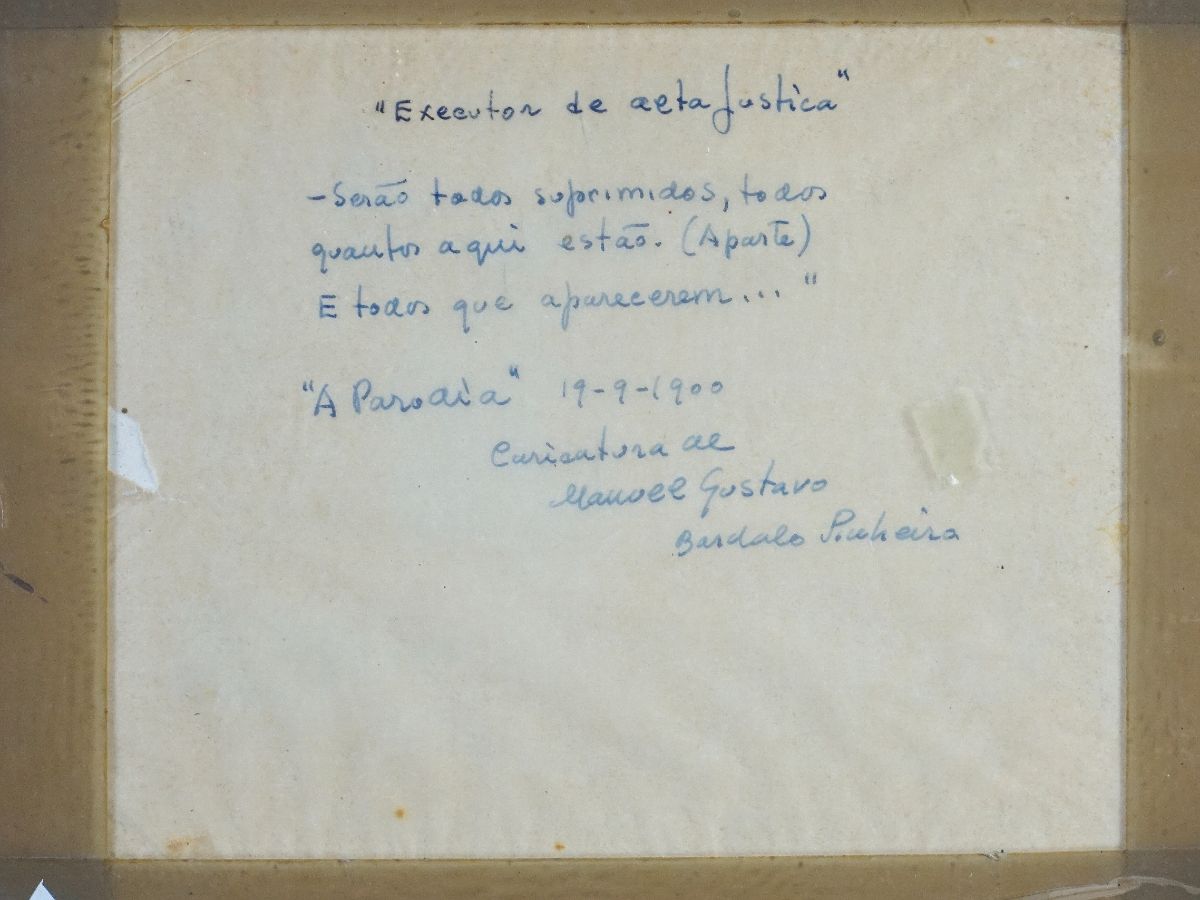 "Executor de alta Justica"
- Serão todos suprimidos, todos
quantos aqui estão. (Aparte)
E todos que aparecerem... "
"A Parodia" 19-9-1900
Caricatura de
Manuel Gustavo
Bordalo Pinheiro